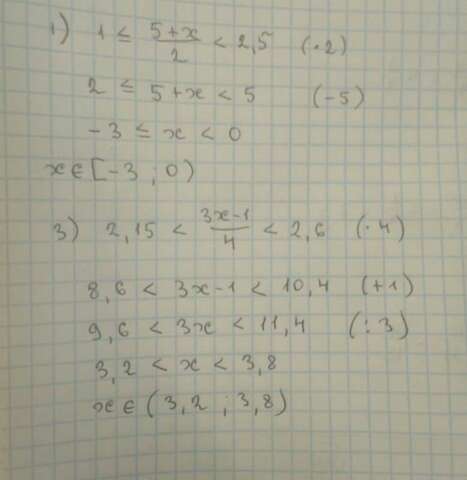 1) 1 ≤ (5+x)/2 < 2,5 (·2)
2 ≤ 5+x < 5 (-5)
-3 ≤ x < 0
x∈[-3 ; 0)
3) 2,15 < (3x-1)/4 < 2,6 (·4)
8,6 < 3x-1 < 10,4 (+1)
9,6 < 3x < 11,4 (:3)
3,2 < x < 3,8
x∈(3,2 ; 3,8)